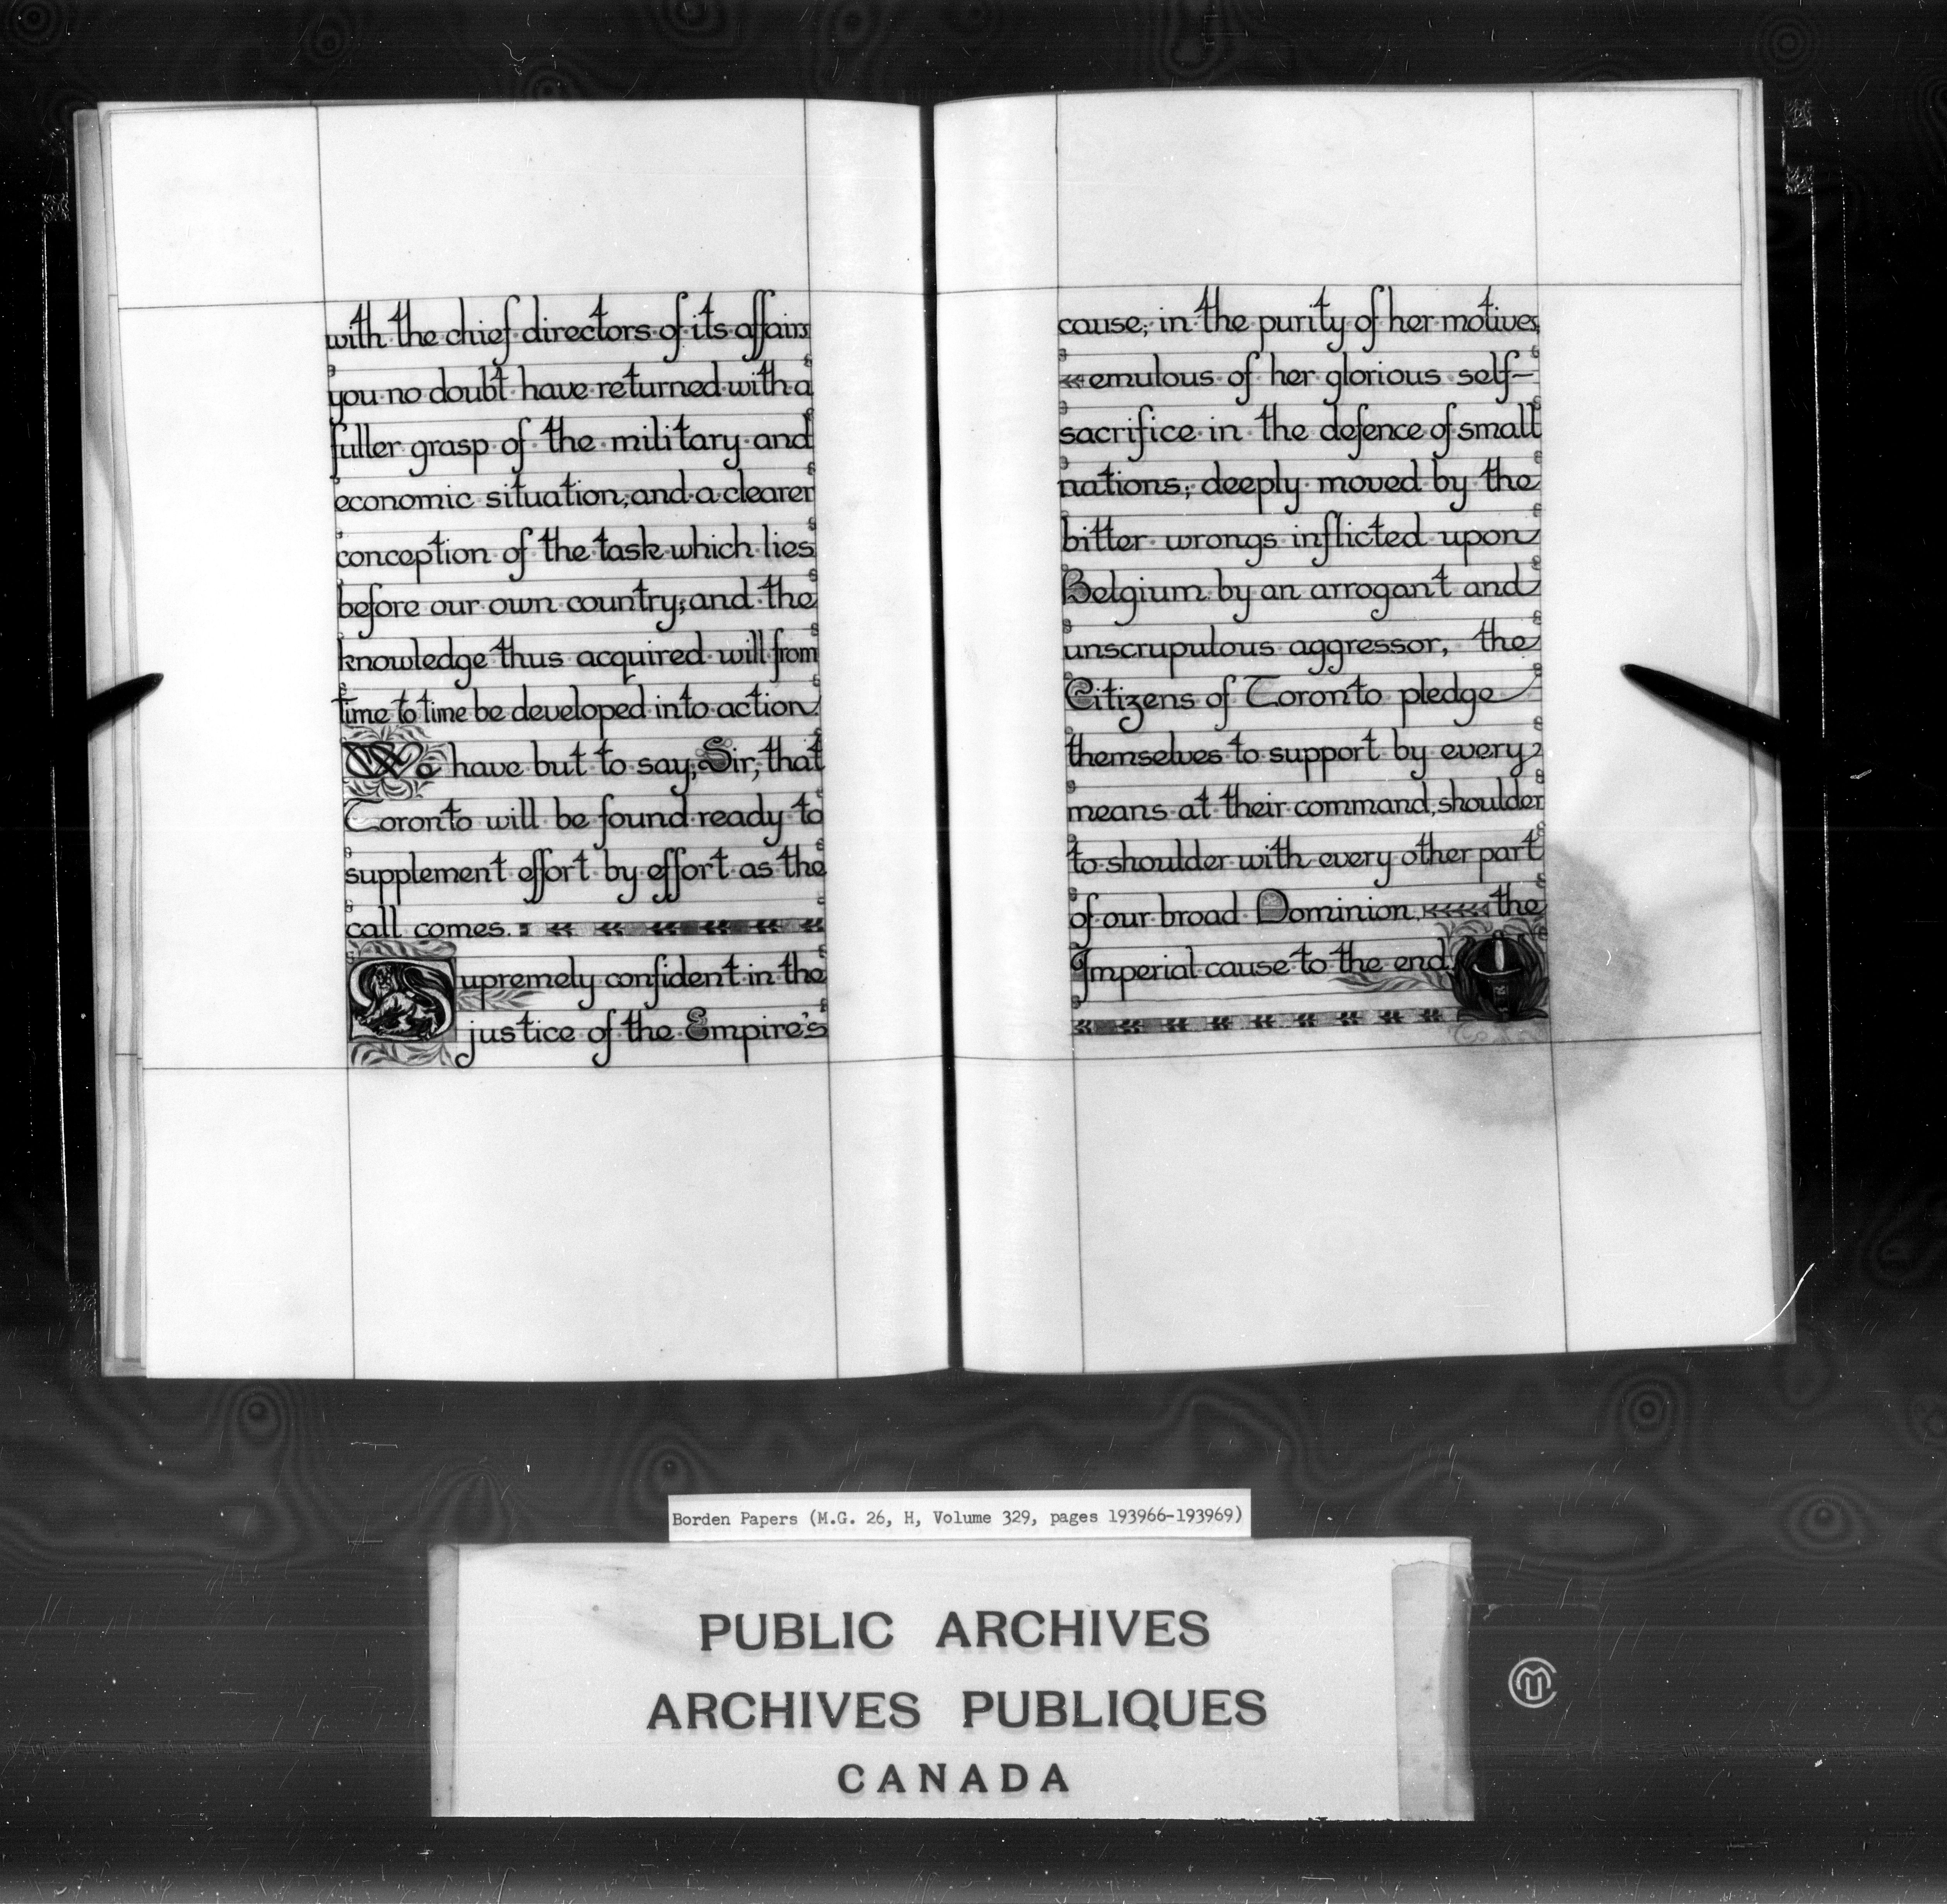 with the chief directors of its affairs
you no doubt have returned with a
fuller grasp of the military and
economic situation, and a clearer
conception of the task which lies
before our own country; and the
knowledge thus acquired will from
time to time be developed into action.
We have but to say, Sir, that
Toronto will be found ready to
supplement effort by effort as the
call comes.
Supremely confident in the
justice of the Empire's
cause; in the purity of her motives,
emulous of her glorious self-
sacrifice in the defence of small
nations; deeply moved by the
bitter wrongs inflicted upon
Belgium by an arrogant and
unscrupulous aggressor, the
Citizens of Toronto pledge
themselves to support by every
means at their command, shoulder
to shoulder with every other part
of our broad Dominion, the
Imperial cause to the end.
Borden Papers (M.G. 26, H, Volume 329, pages 193966-193969)
PUBLIC ARCHIVES
ARCHIVES PUBLIQUES
CANADA